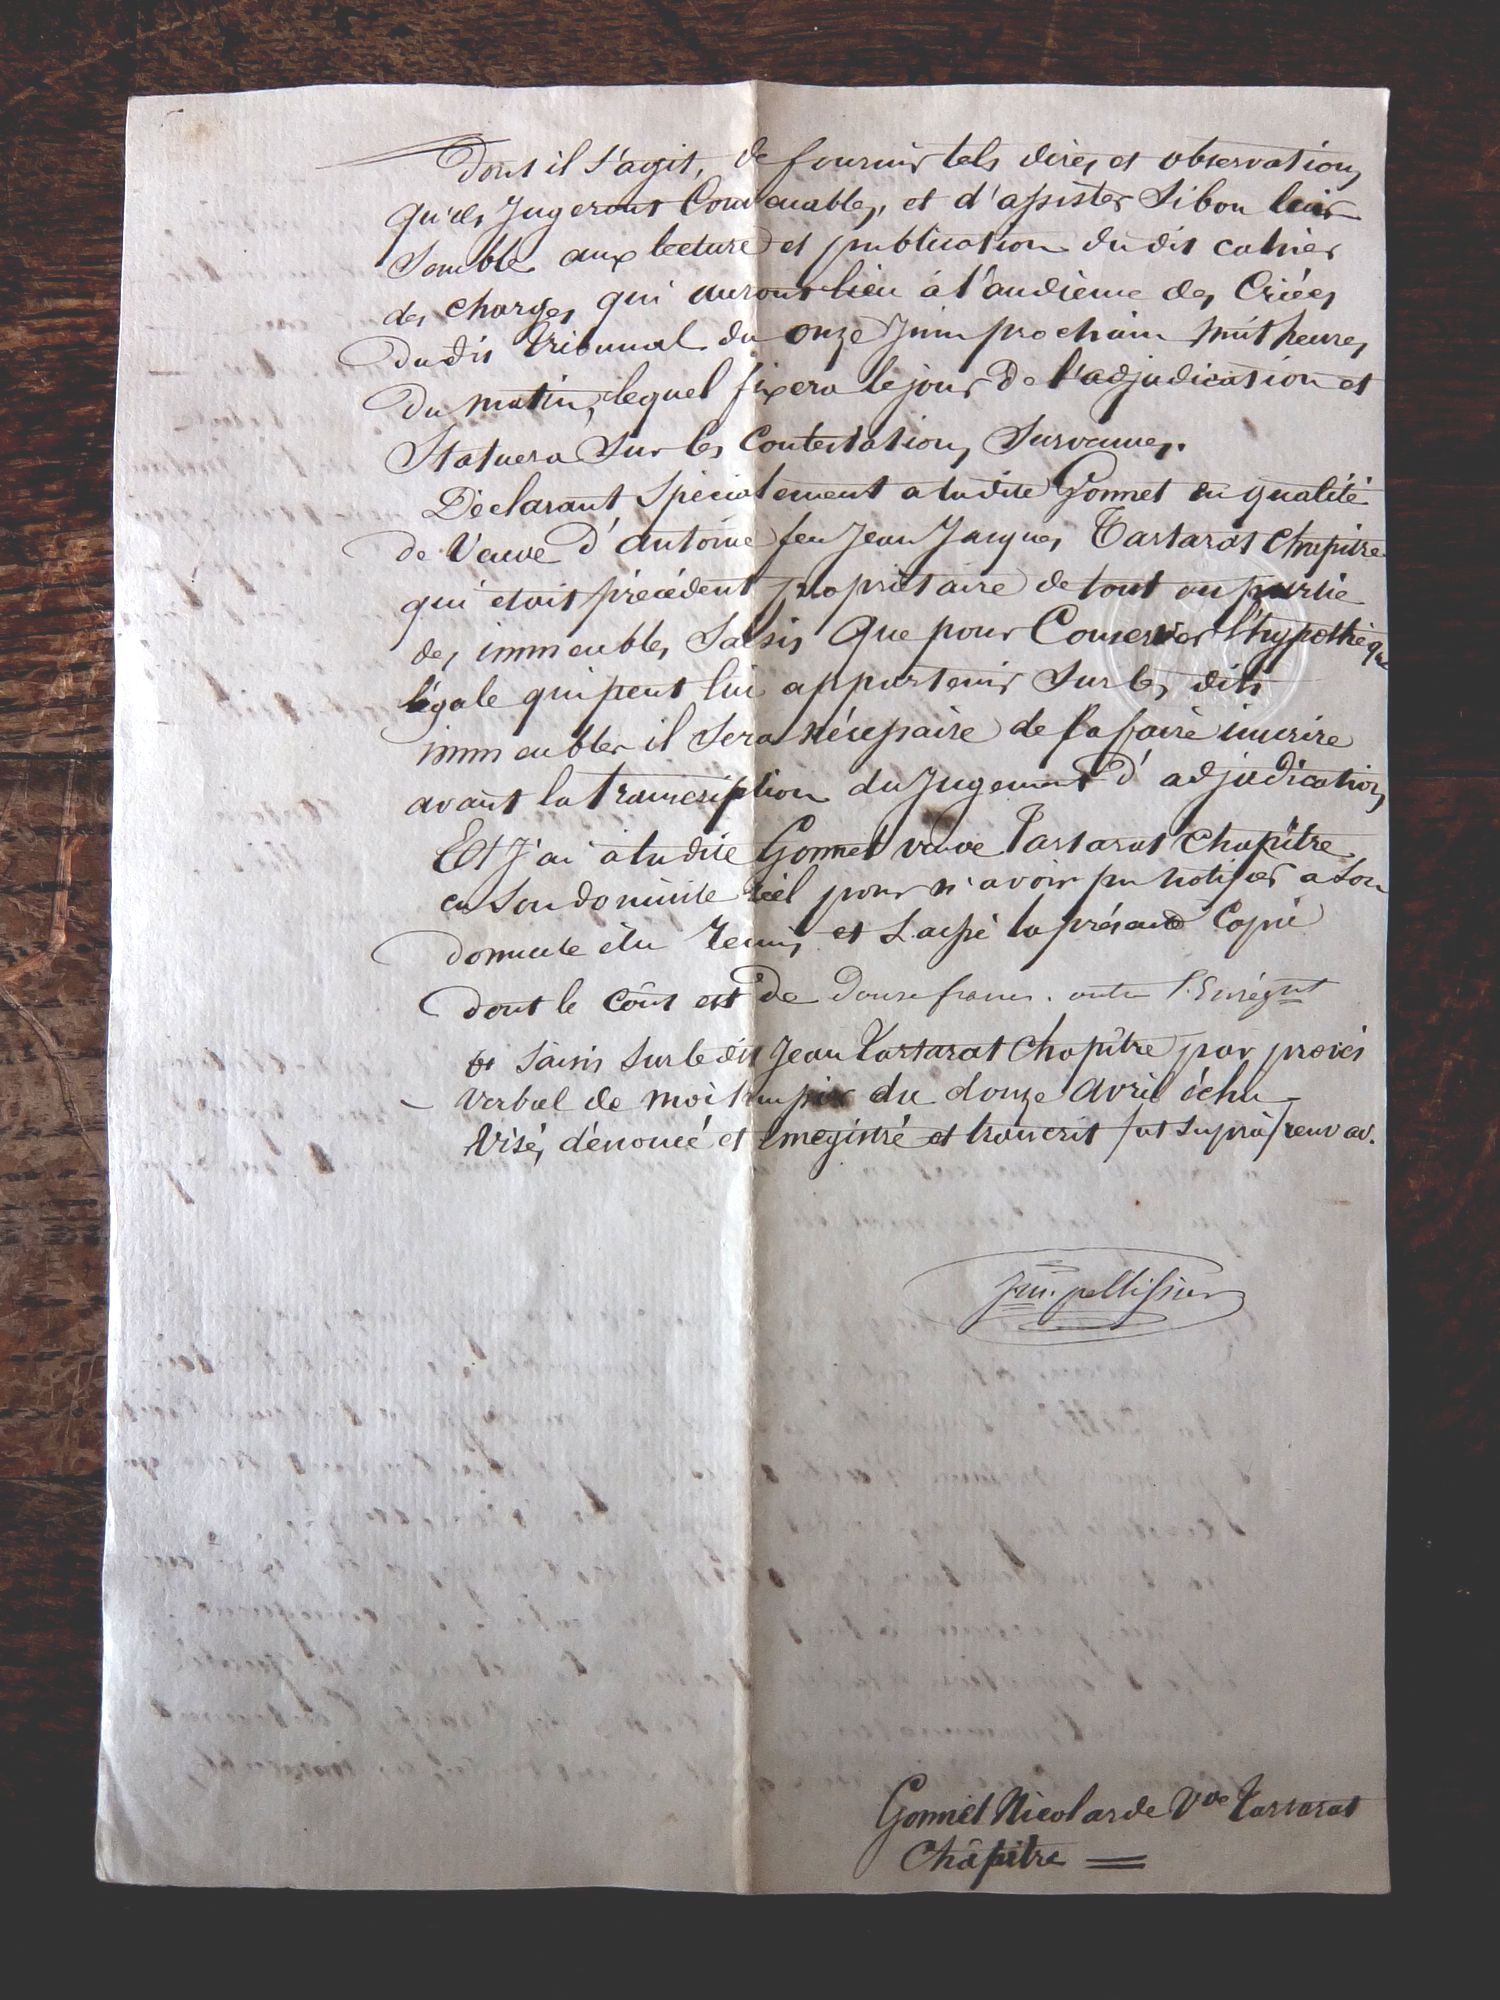 dont il s'agit, de fournir tels dires et observations
qu'ils Jugeront Convenables, et d'assister si bon leur
semble aux lecture et publication du dit cahier
des charges qui auront lieu à l'audience des Criées
du dit tribunal du onze Juin prochain huit heures
du matin, lequel fixera le jour de l'adjudication et
statuera sur les Contestations survenues.
Déclarant spécialement a ladite Gonnet en qualité
de Veuve d'antoine feu Jean Jacques Tartarat Chapitre
qui étoit précédent propriétaire de tout ou partie
des immeubles saisis que pour Conserver l'hypothèque
légale qui peut lui appartenir sur les dits
immeubles il sera nécessaire de la faire inscrire
avant la transcription du Jugement d'adjudication,
Et J'ai à ladite Gonnet veuve Tartarat Chapitre
en son domicile réel pour n'avoir pu notifier a son
domicile élu remis et laissé la présente Copie
dont le Coût est de Douze francs outre l'Enregnt
et saisis sur le dit Jean Tartarat Chapitre par procès
verbal de moi huissier du douze avril échu
Visé, dénoncé et enregistré et transcrit /ut suprà/ renv ap.
pellissier
Gonnet Nicolarde Vve Tartarat
Châpitre